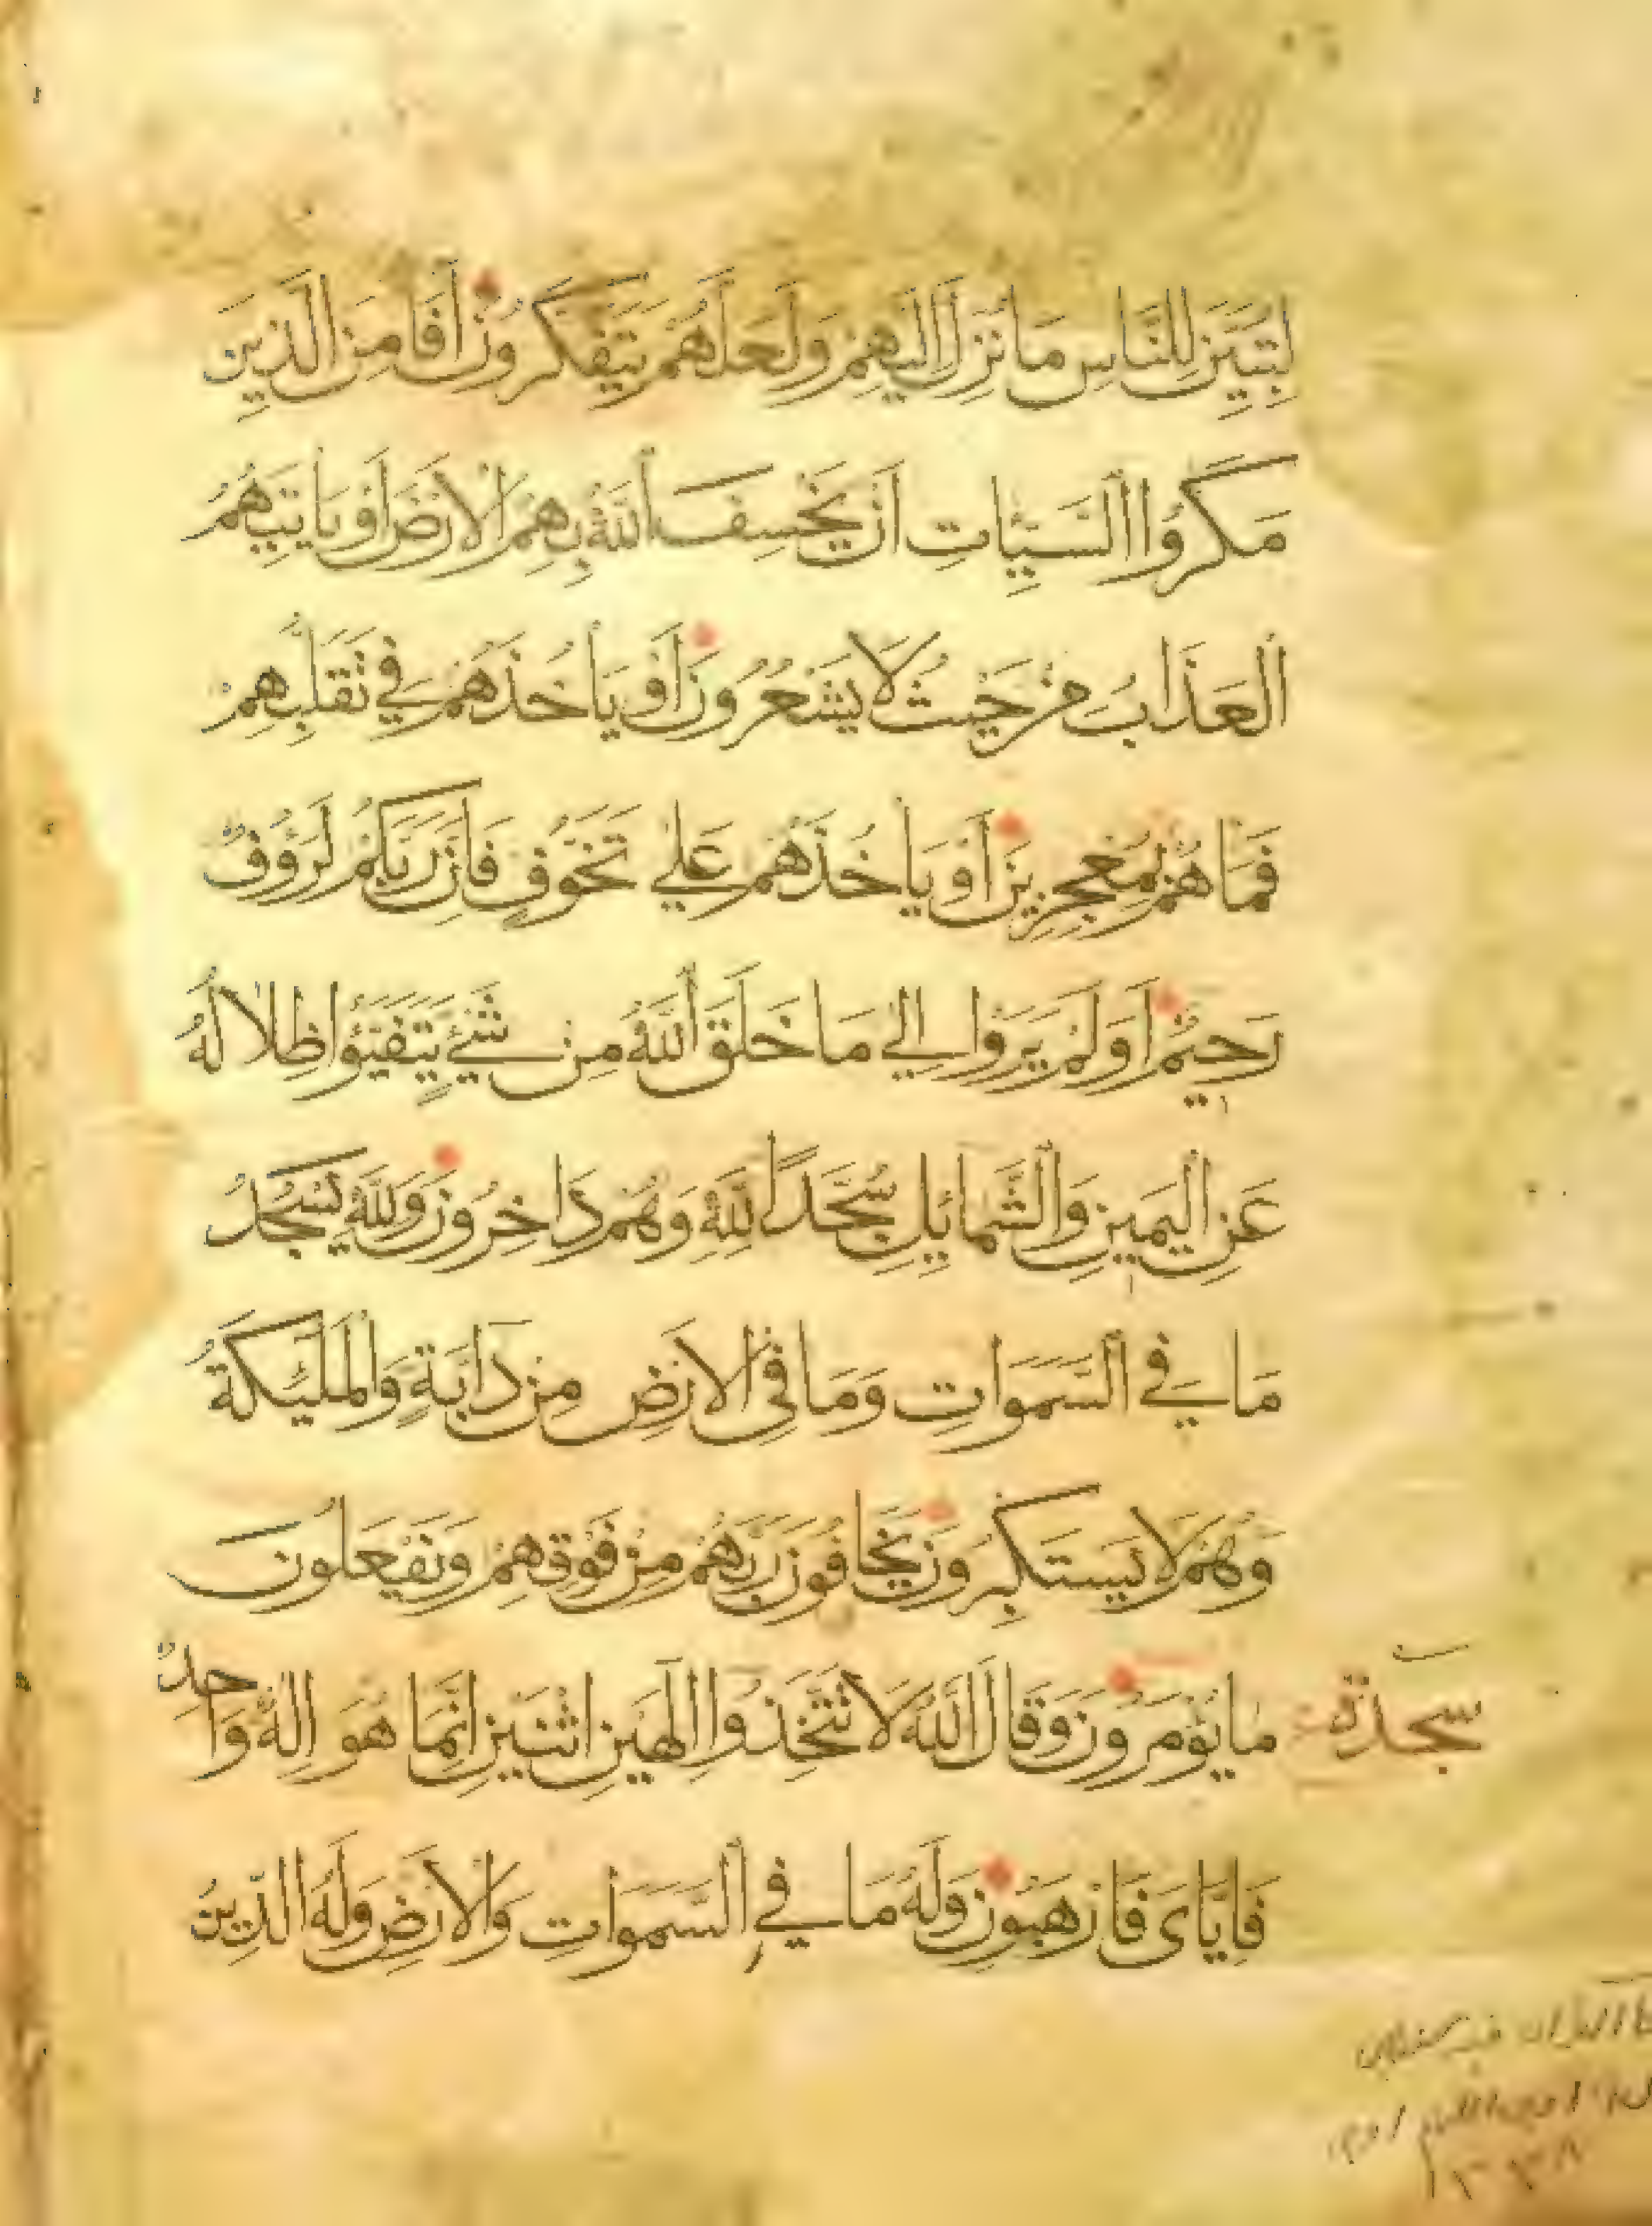 لِتُبَيِّنَ لِلنَّاسِ مَا نُزِّلَ اِلَيْهِمْ وَلَعَلَّهُمْ يَتَفَكَّرُونَ اَفَاَمِنَ الَّذِينَ
مَكَرُوا السَّيِّاٰتِ اَنْ يَخْسِفَ اللّٰهُ بِهِمُ الْاَرْضَ اَوْ يَاْتِيَهُمُ
الْعَذَابُ مِنْ حَيْثُ لَا يَشْعُرُونَ اَوْ يَاْخُذَهُمْ فِي تَقَلُّبِهِمْ
فَمَا هُمْ بِمُعْجِزِينَ اَوْ يَاْخُذَهُمْ عَلٰي تَخَوُّفٍ فَاِنَّ رَبَّكُمْ لَرَؤُوفٌ
رَحِيمٌ اَوَلَمْ يَرَوْا اِلٰي مَا خَلَقَ اللّٰهُ مِنْ شَيْءٍ يَتَفَيَّؤُا ظِلَالُهُ
عَنِ الْيَمِينِ وَالشَّمَائِلِ سُجَّدًا لِلّٰهِ وَهُمْ دَاخِرُونَ وَلِلّٰهِ يَسْجُدُ
مَا فِي السَّمَوَاتِ وَمَا فِي الْاَرْضِ مِنْ دَابَّةٍ وَالْمَلٰئِكَةُ
وَهُمْ لَا يَسْتَكْبِرُونَ يَخَافُونَ رَبَّهُمْ مِنْ فَوْقِهِمْ وَيَفْعَلُونَ
سجدة
مَا يُؤْمَرُونَ وَقَالَ اللّٰهُ لَا تَتَّخِذُوا اِلٰهَيْنِ اثْنَيْنِ اِنَّمَا هُوَ اِلٰهٌ وَاحِدٌ
فَاِيَّايَ فَارْهَبُونِ وَلَهُ مَا فِي السَّمَوَاتِ وَالْاَرْضِ وَلَهُ الدِّينُ